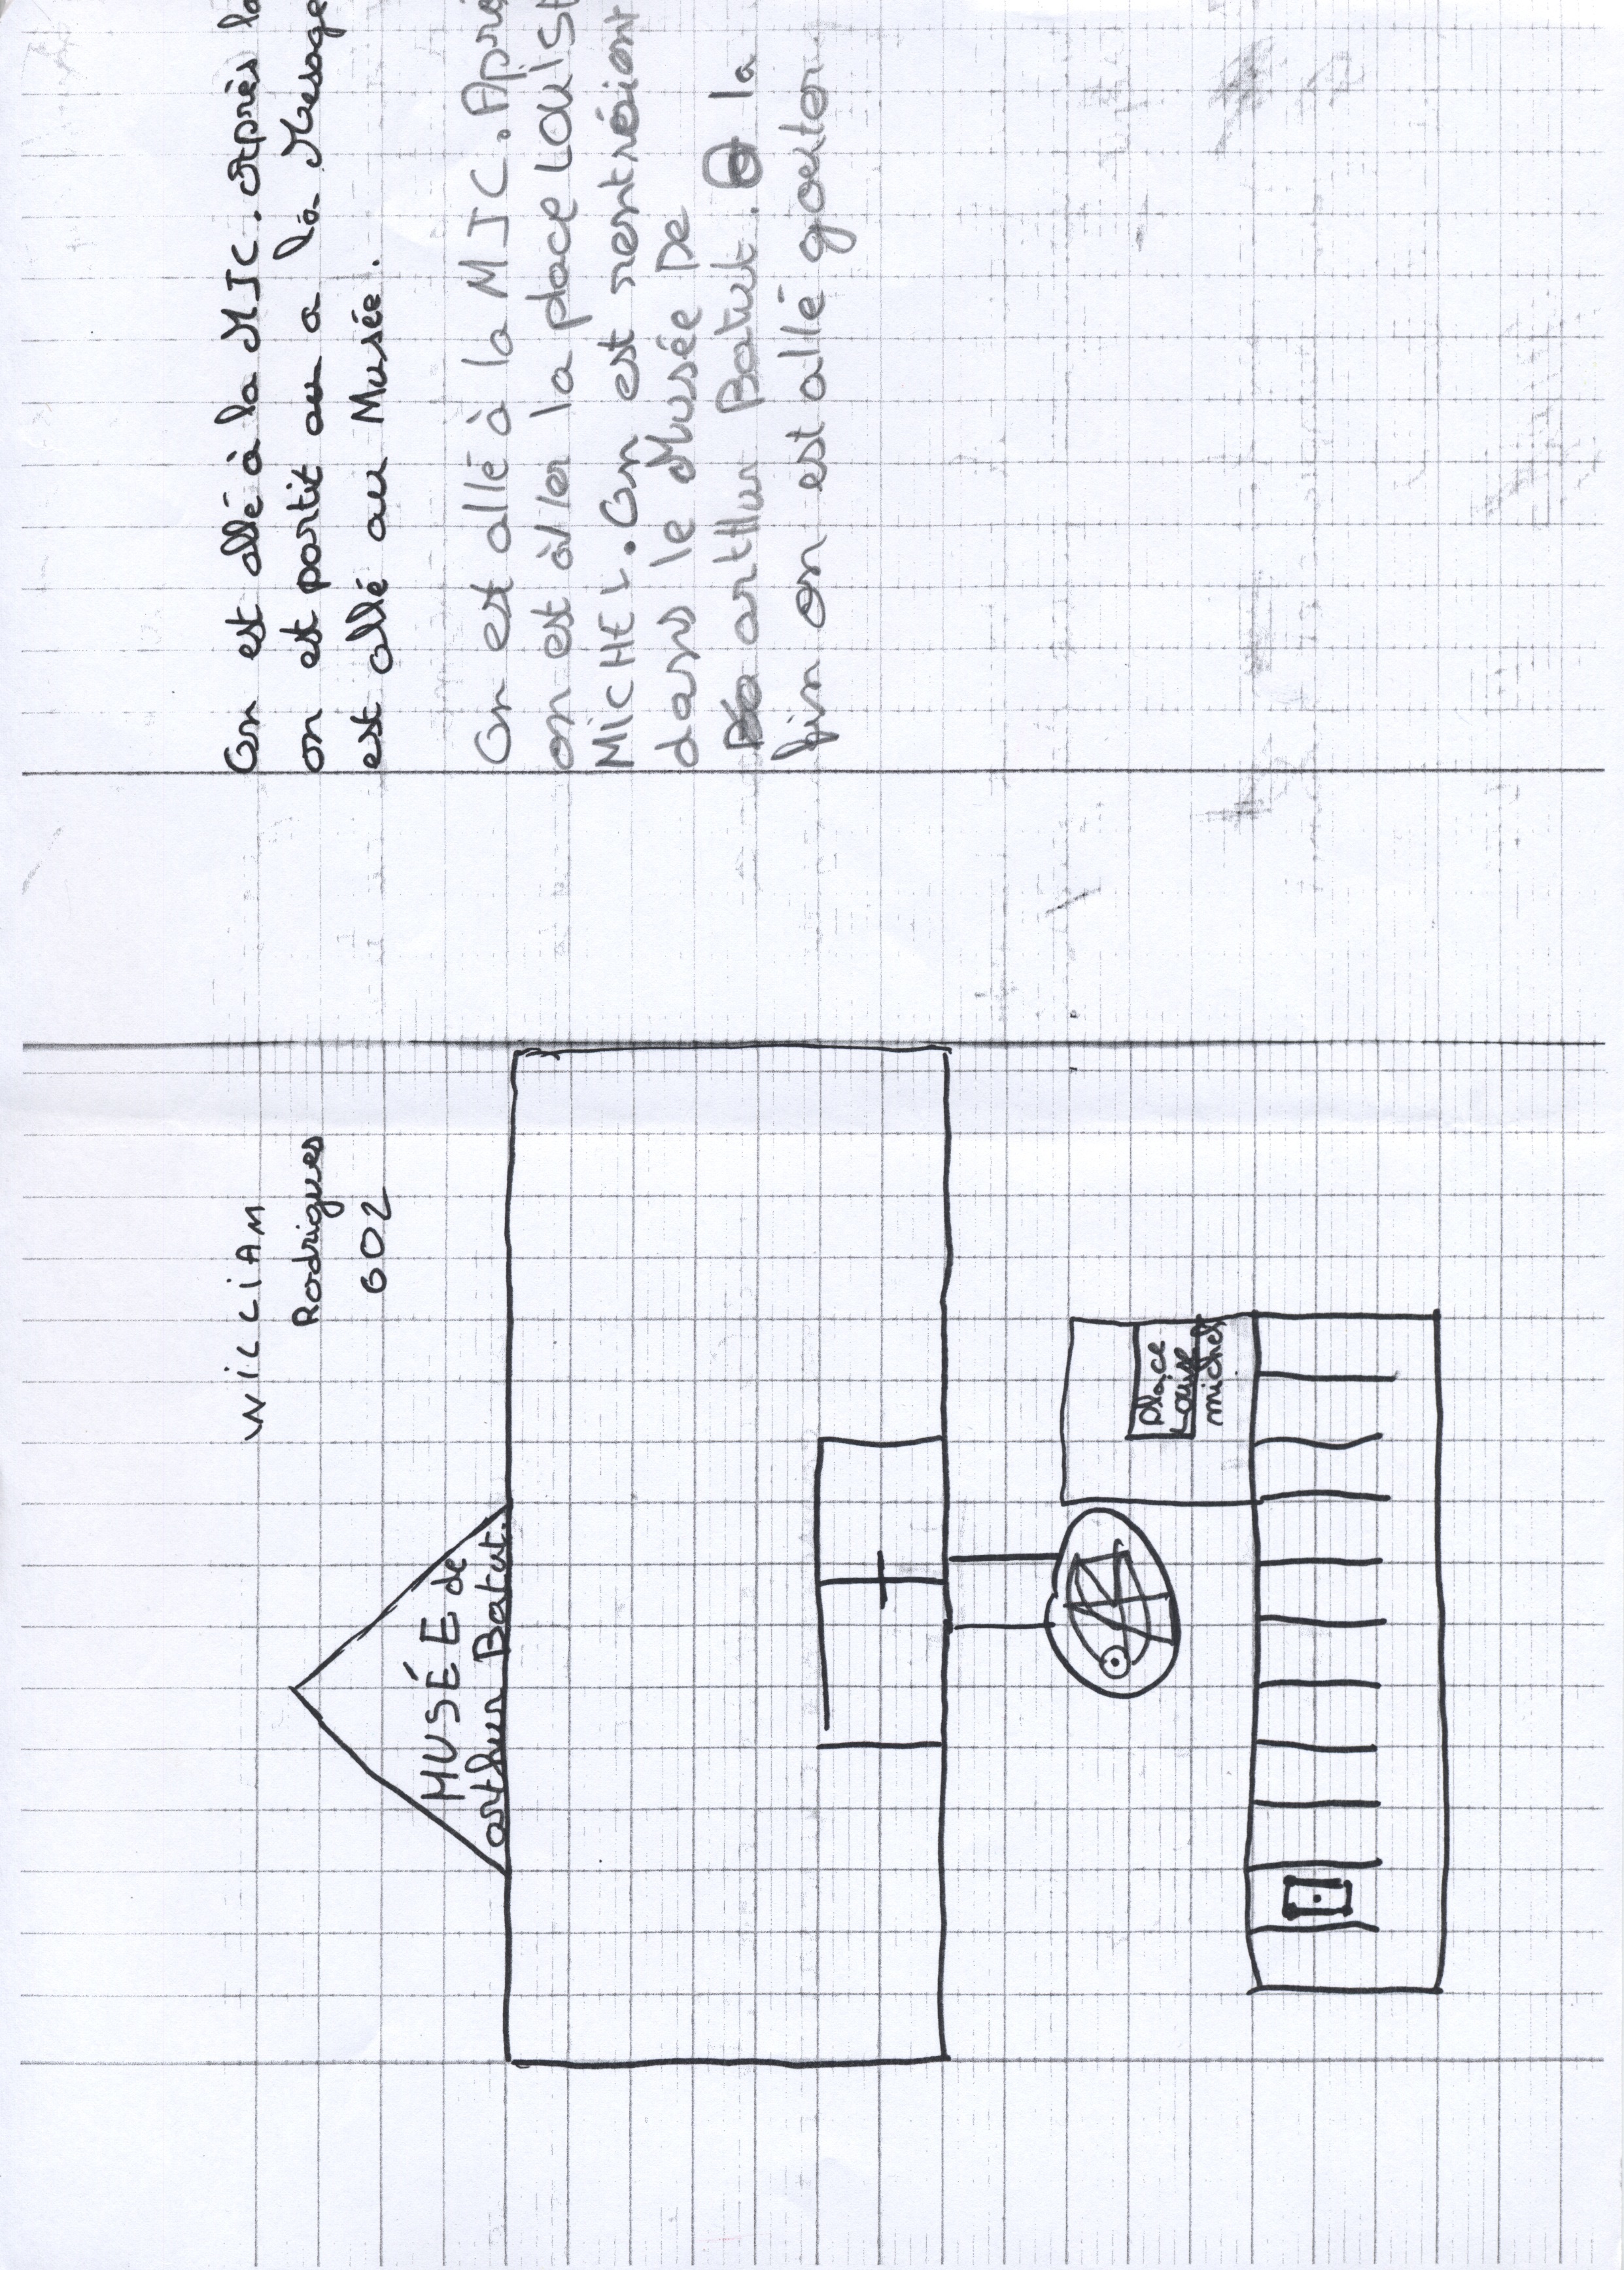 WiLLiAM
Rodrigues
602
MUSÉE de
arthur Batut.
Place
Louise
michel
On est allé à la MJC. Après la
on est partit au a la
est allé au Musée.
On est allé à la MJC. Apré
on est aller la place LOUiSE
MiCHEL. On est rentréiont
dans le Musée De
arthur Batut. la
fin on est allé goûter